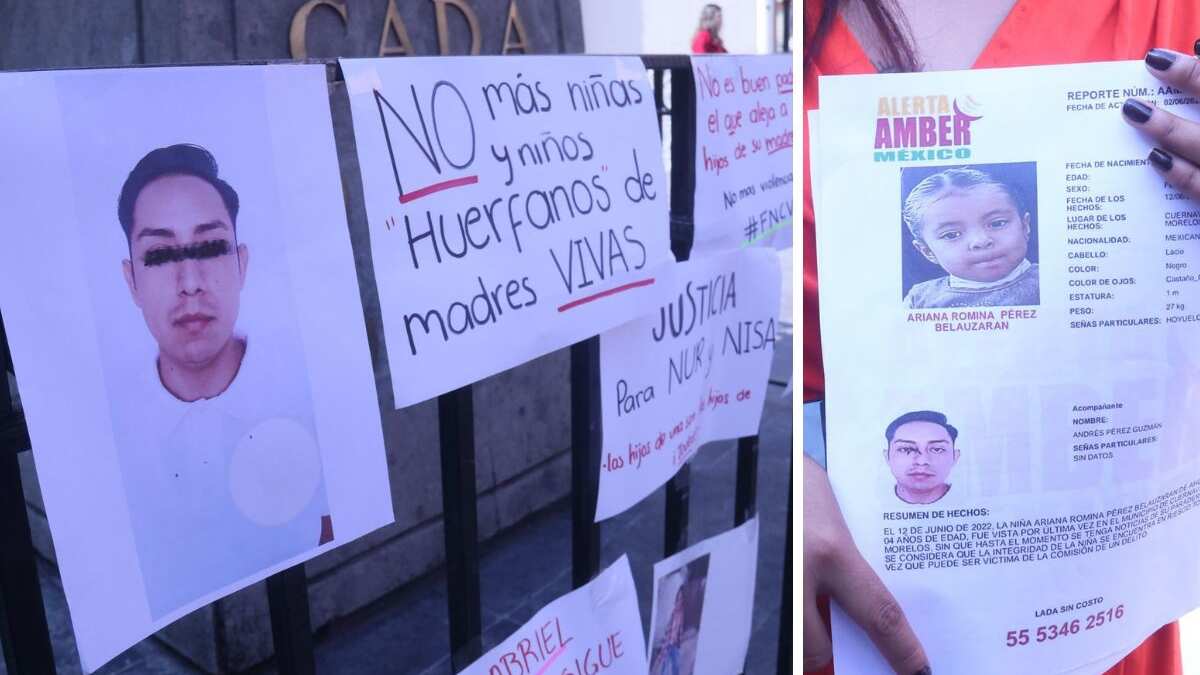 CADA
NO más niñas
y niños
"Huerfanos" de
madres VIVAS
No es buen padre
el que aleja a
hijos de su madre
No mas violencia
#FNCV
JUSTICIA
Para NUR y NISA
los hijos de una son hijos de
GABRIEL
SIGUE
ALERTA
AMBER
MÉXICO
REPORTE NÚM.:
FECHA DE 02/06/
ARIANA ROMINA PÉREZ
BELAUZARAN
FECHA DE NACIMIENTO
EDAD:
SEXO:
FECHA DE LOS
HECHOS: 12/06/
LUGAR DE LOS
HECHOS: CUERNAV
MORELOS
NACIONALIDAD: MEXICAN
CABELLO: Lacio
COLOR: Negro
COLOR DE OJOS: Castaño
ESTATURA: 1 m
PESO: 27 kg
SEÑAS PARTICULARES: HOYUELO
Acompañante
NOMBRE:
ANDRÉS PÉREZ GUZMÁN
SEÑAS PARTICULARES:
SIN DATOS
RESUMEN DE HECHOS:
EL 12 DE JUNIO DE 2022, LA NIÑA ARIANA ROMINA PÉREZ BELAUZARAN DE
04 AÑOS DE EDAD, FUE VISTA POR ÚLTIMA VEZ EN EL MUNICIPIO DE CUERNAV
MORELOS, SIN QUE HASTA EL MOMENTO SE TENGA NOTICIAS DE SU PARADERO
SE CONSIDERA QUE LA INTEGRIDAD DE LA NIÑA SE ENCUENTRA EN RIESGO
VEZ QUE PUEDE SER VICTIMA DE LA COMISIÓN DE UN DELITO
LADA SIN COSTO
55 5346 2516